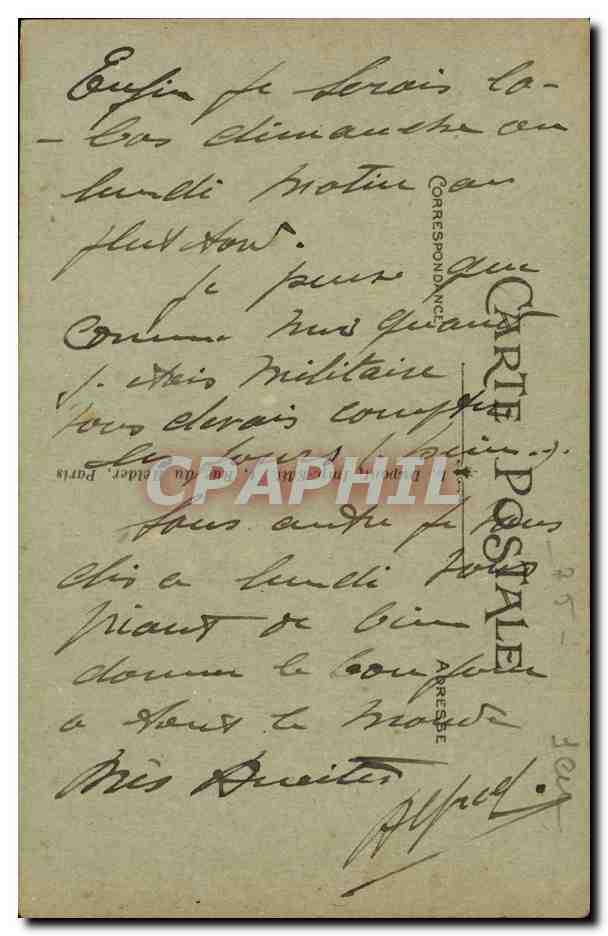 Enfin je serais là-
-bas dimanche ou
lundi matin au
plus tard.
Je pense que
comme moi quand
j'étais militaire
vous devais compter
les jours
Sous autre je vous
dis a lundi vous
priant de bien
donner le bonjour
a tout le monde
Amitiés
Alfred.
CARTE POSTALE
CORRESPONDANCE
ADRESSE
L. Dupont, Imp.-Edit., Rue du Helder, Paris
CPAPHIL
- 75 -